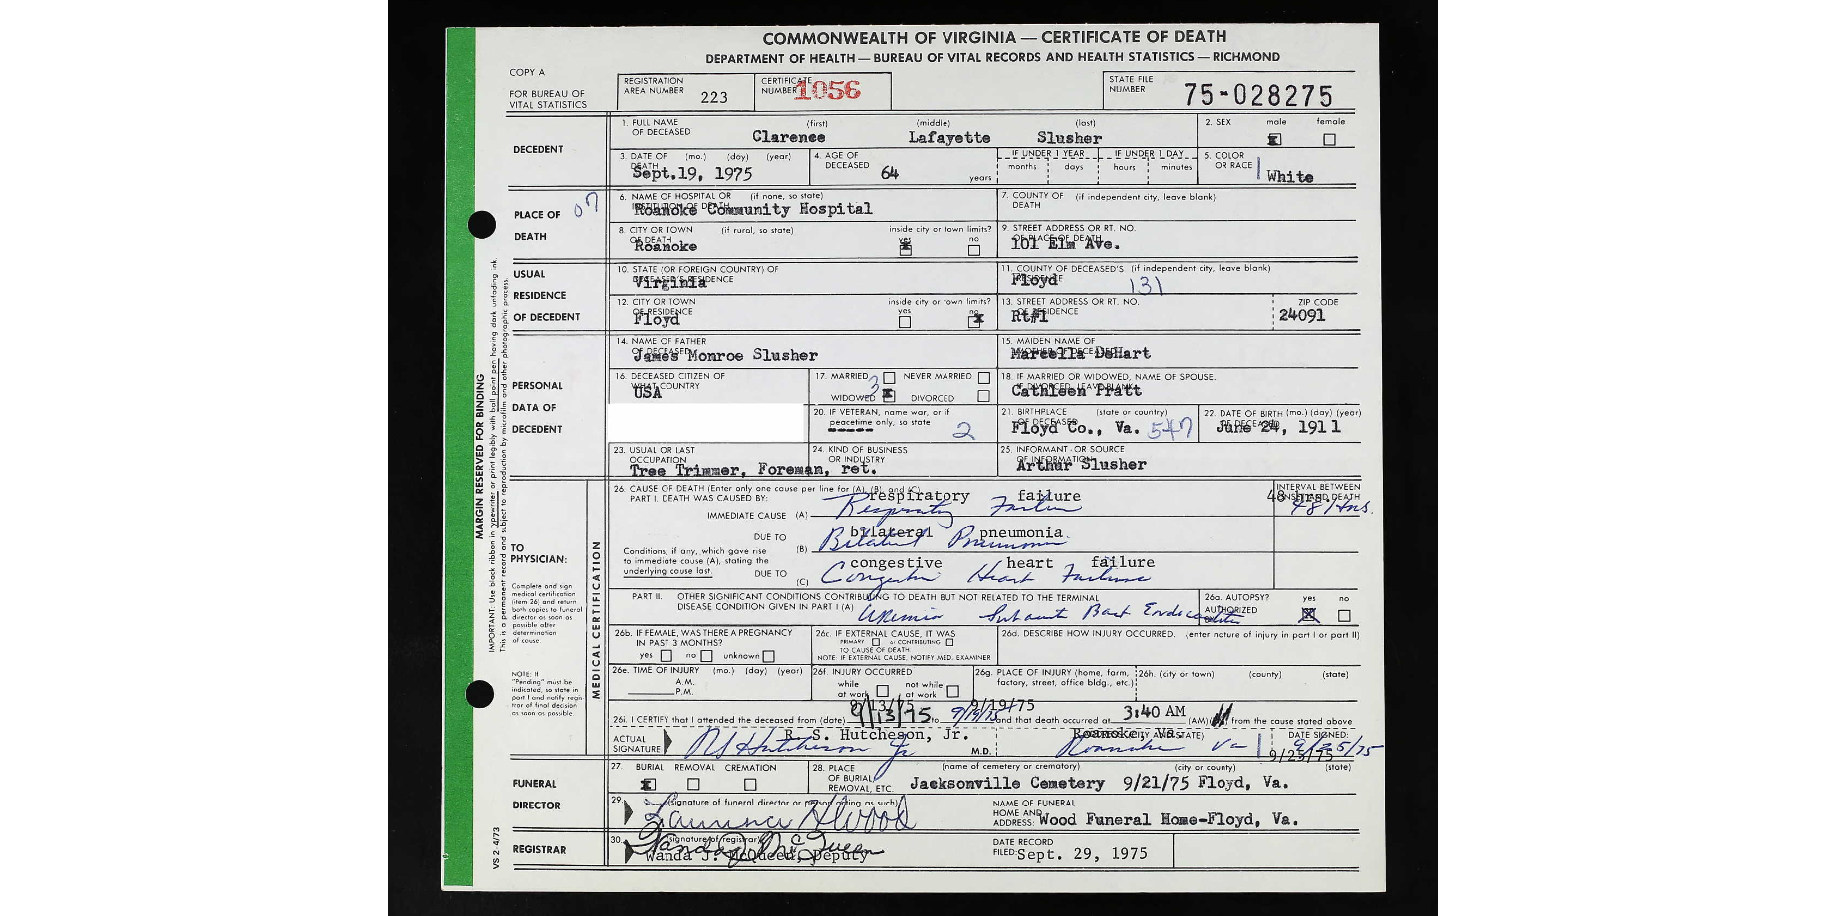 COMMONWEALTH OF VIRGINIA — CERTIFICATE OF DEATH
DEPARTMENT OF HEALTH — BUREAU OF VITAL RECORDS AND HEALTH STATISTICS — RICHMOND
COPY A
FOR BUREAU OF VITAL STATISTICS
REGISTRATION AREA NUMBER 223
CERTIFICATE NUMBER 1056
STATE FILE NUMBER 75-028275
DECEDENT
1. FULL NAME OF DECEASED (first) (middle) (last)
Clarence Lafayette Slusher
2. SEX male female
3. DATE OF DEATH (mo.) (day) (year)
Sept.19, 1975
4. AGE OF DECEASED 64 years
IF UNDER 1 YEAR months days
IF UNDER 1 DAY hours minutes
5. COLOR OR RACE White
PLACE OF DEATH
07
6. NAME OF HOSPITAL OR INSTITUTION OF DEATH (if none, so state)
Roanoke Community Hospital
7. COUNTY OF DEATH (if independent city, leave blank)
8. CITY OR TOWN OF DEATH (if rural, so state) inside city or town limits? yes no
Roanoke
9. STREET ADDRESS OR RT. NO. OF PLACE OF DEATH
101 Elm Ave.
USUAL RESIDENCE OF DECEDENT
10. STATE (OR FOREIGN COUNTRY) OF DECEASED'S RESIDENCE
Virginia
11. COUNTY OF DECEASED'S RESIDENCE (if independent city, leave blank)
Floyd 131
12. CITY OR TOWN OF RESIDENCE inside city or town limits? yes no
Floyd
13. STREET ADDRESS OR RT. NO. OF RESIDENCE ZIP CODE
Rt#1 24091
PERSONAL DATA OF DECEDENT
14. NAME OF FATHER OF DECEASED
James Monroe Slusher
15. MAIDEN NAME OF MOTHER OF DECEASED
Marcella DeHart
16. DECEASED CITIZEN OF WHAT COUNTRY
USA
17. MARRIED NEVER MARRIED
WIDOWED DIVORCED
3
18. IF MARRIED OR WIDOWED, NAME OF SPOUSE. IF DIVORCED, LEAVE BLANK
Cathleen Pratt
20. IF VETERAN, name war, or if peacetime only, so state
2
21. BIRTHPLACE OF DECEASED (state or country)
Floyd Co., Va. 547
22. DATE OF BIRTH (mo.) (day) (year) OF DECEASED
June 24, 1911
23. USUAL OR LAST OCCUPATION
Tree Trimmer, Foreman, ret.
24. KIND OF BUSINESS OR INDUSTRY
25. INFORMANT - OR SOURCE OF INFORMATION
Arthur Slusher
MARGIN RESERVED FOR BINDING
IMPORTANT: Use black ribbon in typewriter or print legibly with ball point pen having dark unfading ink.
This is a permanent record and subject to reproduction by microfilm and other photographic process.
TO PHYSICIAN:
Complete and sign medical certification (item 26) and return both copies to funeral director as soon as possible after determination of cause.
NOTE: If "Pending" must be indicated, so state in part I and notify registrar of final decision as soon as possible.
MEDICAL CERTIFICATION
26. CAUSE OF DEATH (Enter only one cause per line for (A), (B), and (C).
PART I. DEATH WAS CAUSED BY:
INTERVAL BETWEEN ONSET AND DEATH
IMMEDIATE CAUSE (A) respiratory failure 48 hrs.
Respiratory Failure 48 Hrs.
DUE TO (B) bilateral pneumonia
Bilateral Pneumonia
Conditions, if any, which gave rise to immediate cause (A), stating the underlying cause last.
DUE TO (C) congestive heart failure
Congestive Heart Failure
PART II. OTHER SIGNIFICANT CONDITIONS CONTRIBUTING TO DEATH BUT NOT RELATED TO THE TERMINAL DISEASE CONDITION GIVEN IN PART I (A)
Uremia Subacute Bact Endocarditis
26a. AUTOPSY? AUTHORIZED yes no
26b. IF FEMALE, WAS THERE A PREGNANCY IN PAST 3 MONTHS?
yes no unknown
26c. IF EXTERNAL CAUSE, IT WAS PRIMARY or CONTRIBUTING TO CAUSE OF DEATH.
NOTE: IF EXTERNAL CAUSE, NOTIFY MED. EXAMINER
26d. DESCRIBE HOW INJURY OCCURRED. (enter nature of injury in part I or part II)
26e. TIME OF INJURY (mo.) (day) (year)
A.M.
P.M.
26f. INJURY OCCURRED while at work not while at work
26g. PLACE OF INJURY (home, farm, factory, street, office bldg., etc.)
26h. (city or town) (county) (state)
9/13/75 9/19/75
26i. I CERTIFY that I attended the deceased from (date) 9/13/75 to 9/19/75 and that death occurred at 3:40 AM (AM) from the cause stated above
ACTUAL SIGNATURE R. S. Hutcheson, Jr. M.D.
RS Hutcheson Jr
Roanoke, Va. (CITY AND STATE)
Roanoke Va
DATE SIGNED:
9/25/75
9/25/75
FUNERAL DIRECTOR
27. BURIAL REMOVAL CREMATION
28. PLACE OF BURIAL, REMOVAL, ETC. (name of cemetery or crematory) (city or county) (state)
Jacksonville Cemetery 9/21/75 Floyd, Va.
29. (signature of funeral director or person acting as such)
NAME OF FUNERAL HOME AND ADDRESS: Wood Funeral Home-Floyd, Va.
REGISTRAR
30. (signature of registrar)
Wanda J. McQueen
Wanda J. McQueen, Deputy
DATE RECORD FILED: Sept. 29, 1975
VS 2 4/73